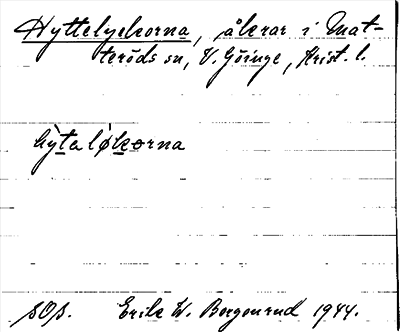 Hyttelyckorna, åkrar i Mat-
teröds sn, V. Göinge, Krist. l.
hỳtaløkorna
Erik W. Bergonrud 1944.